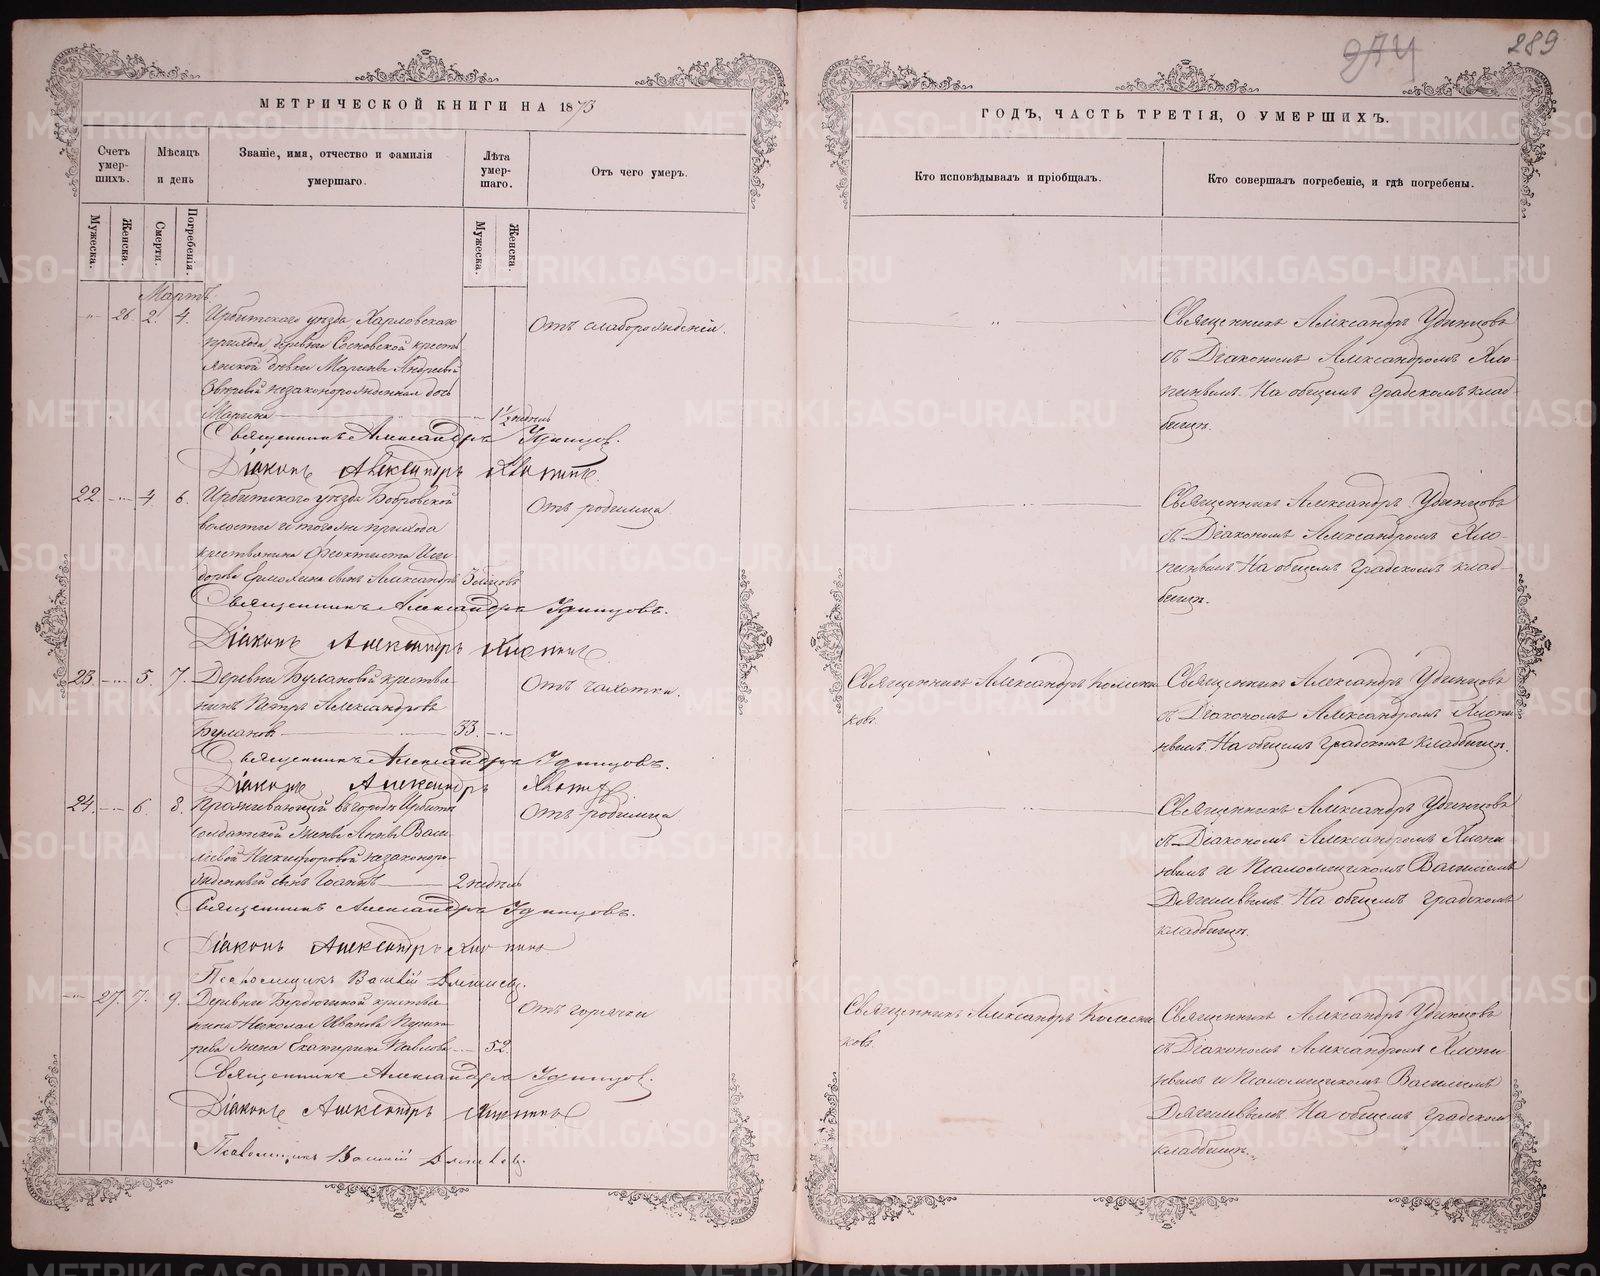 289
МЕТРИЧЕСКОЙ КНИГИ НА 1873
Счетъ умер-шихъ.
Мѣсяцъ и день
Званіе, имя, отчество и фамилія умершаго.
Лѣта умер-шаго.
Отъ чего умеръ.
Мужеска.
Женска.
Смерти.
Погребенія.
Мужеска.
Женска.
Мартъ.
26. 2. 4. Ирбитскаго уѣзда, Харловскаго
прихода, деревни Сосновской кресть
янской дѣвки Марины Андреевой
незаконнорожденная дочь
Марина 1½ недѣль
Отъ слаборожденія.
Священникъ Александръ Удинцовъ.
Діаконъ Александръ Хлопинъ
22 4 6. Ирбитскаго уѣзда Бобровской
волости и тогоже прихода
крестьянина Феоктиста Иси
дорова Ермохина сынъ Александръ
Отъ родимца
Священникъ Александръ Удинцовъ.
Діаконъ Александръ Хлопинъ
23. 5. 7. Деревни Булановой крестья
нинъ Петръ Александровъ
Булановъ 33.
Отъ чахотки.
Священникъ Александръ Удинцовъ.
Діаконъ Александръ Хлопинъ
24. 6. 8. Проживающей въ городѣ Ирбити
солдатской жены Анны Васи
льевой Никифоровой незаконоро
жденный сынъ Іоаннъ 2 недѣль
Отъ родимца
Священникъ Александръ Удинцовъ.
Діаконъ Александръ Хлопинъ
Псаломщикъ Василій
27. 7. 9. Деревни Бердюгиной крестья
нина Николая Иванова
жена Екатерина Павлова 52.
Отъ горячки
Священникъ Александръ Удинцовъ.
Діаконъ Александръ Хлопинъ
Псаломщикъ Василій
ГОДЪ, ЧАСТЬ ТРЕТІЯ, О УМЕРШИХЪ.
Кто исповѣдывалъ и пріобщалъ.
Кто совершалъ погребеніе, и гдѣ погребены.
Священникъ Александръ Удинцовъ
съ Діакономъ Александромъ Хло-
пинымъ. На общемъ градскомъ клад-
бищѣ.
Священникъ Александръ Удинцовъ
съ Діакономъ Александромъ Хло-
пинымъ На общемъ градскомъ клад-
бищѣ.
Священникъ Александръ Колесни
ковъ.
Священникъ Александръ Удинцовъ
съ Діакономъ Александромъ Хлопи
нымъ. На общемъ градскомъ кладбищѣ.
Священникъ Александръ Удинцовъ
съ Діакономъ Александромъ Хлопи
нымъ и Псаломщикомъ Василіемъ
На общемъ градскомъ
кладбищѣ.
Священникъ Александръ Колесни
ковъ.
Священникъ Александръ Удинцовъ
съ Діакономъ Александромъ Хлопи
нымъ и Псаломщикомъ Василіемъ
На общемъ градском
кладбищѣ.
METRIKI.GASO-URAL.RU